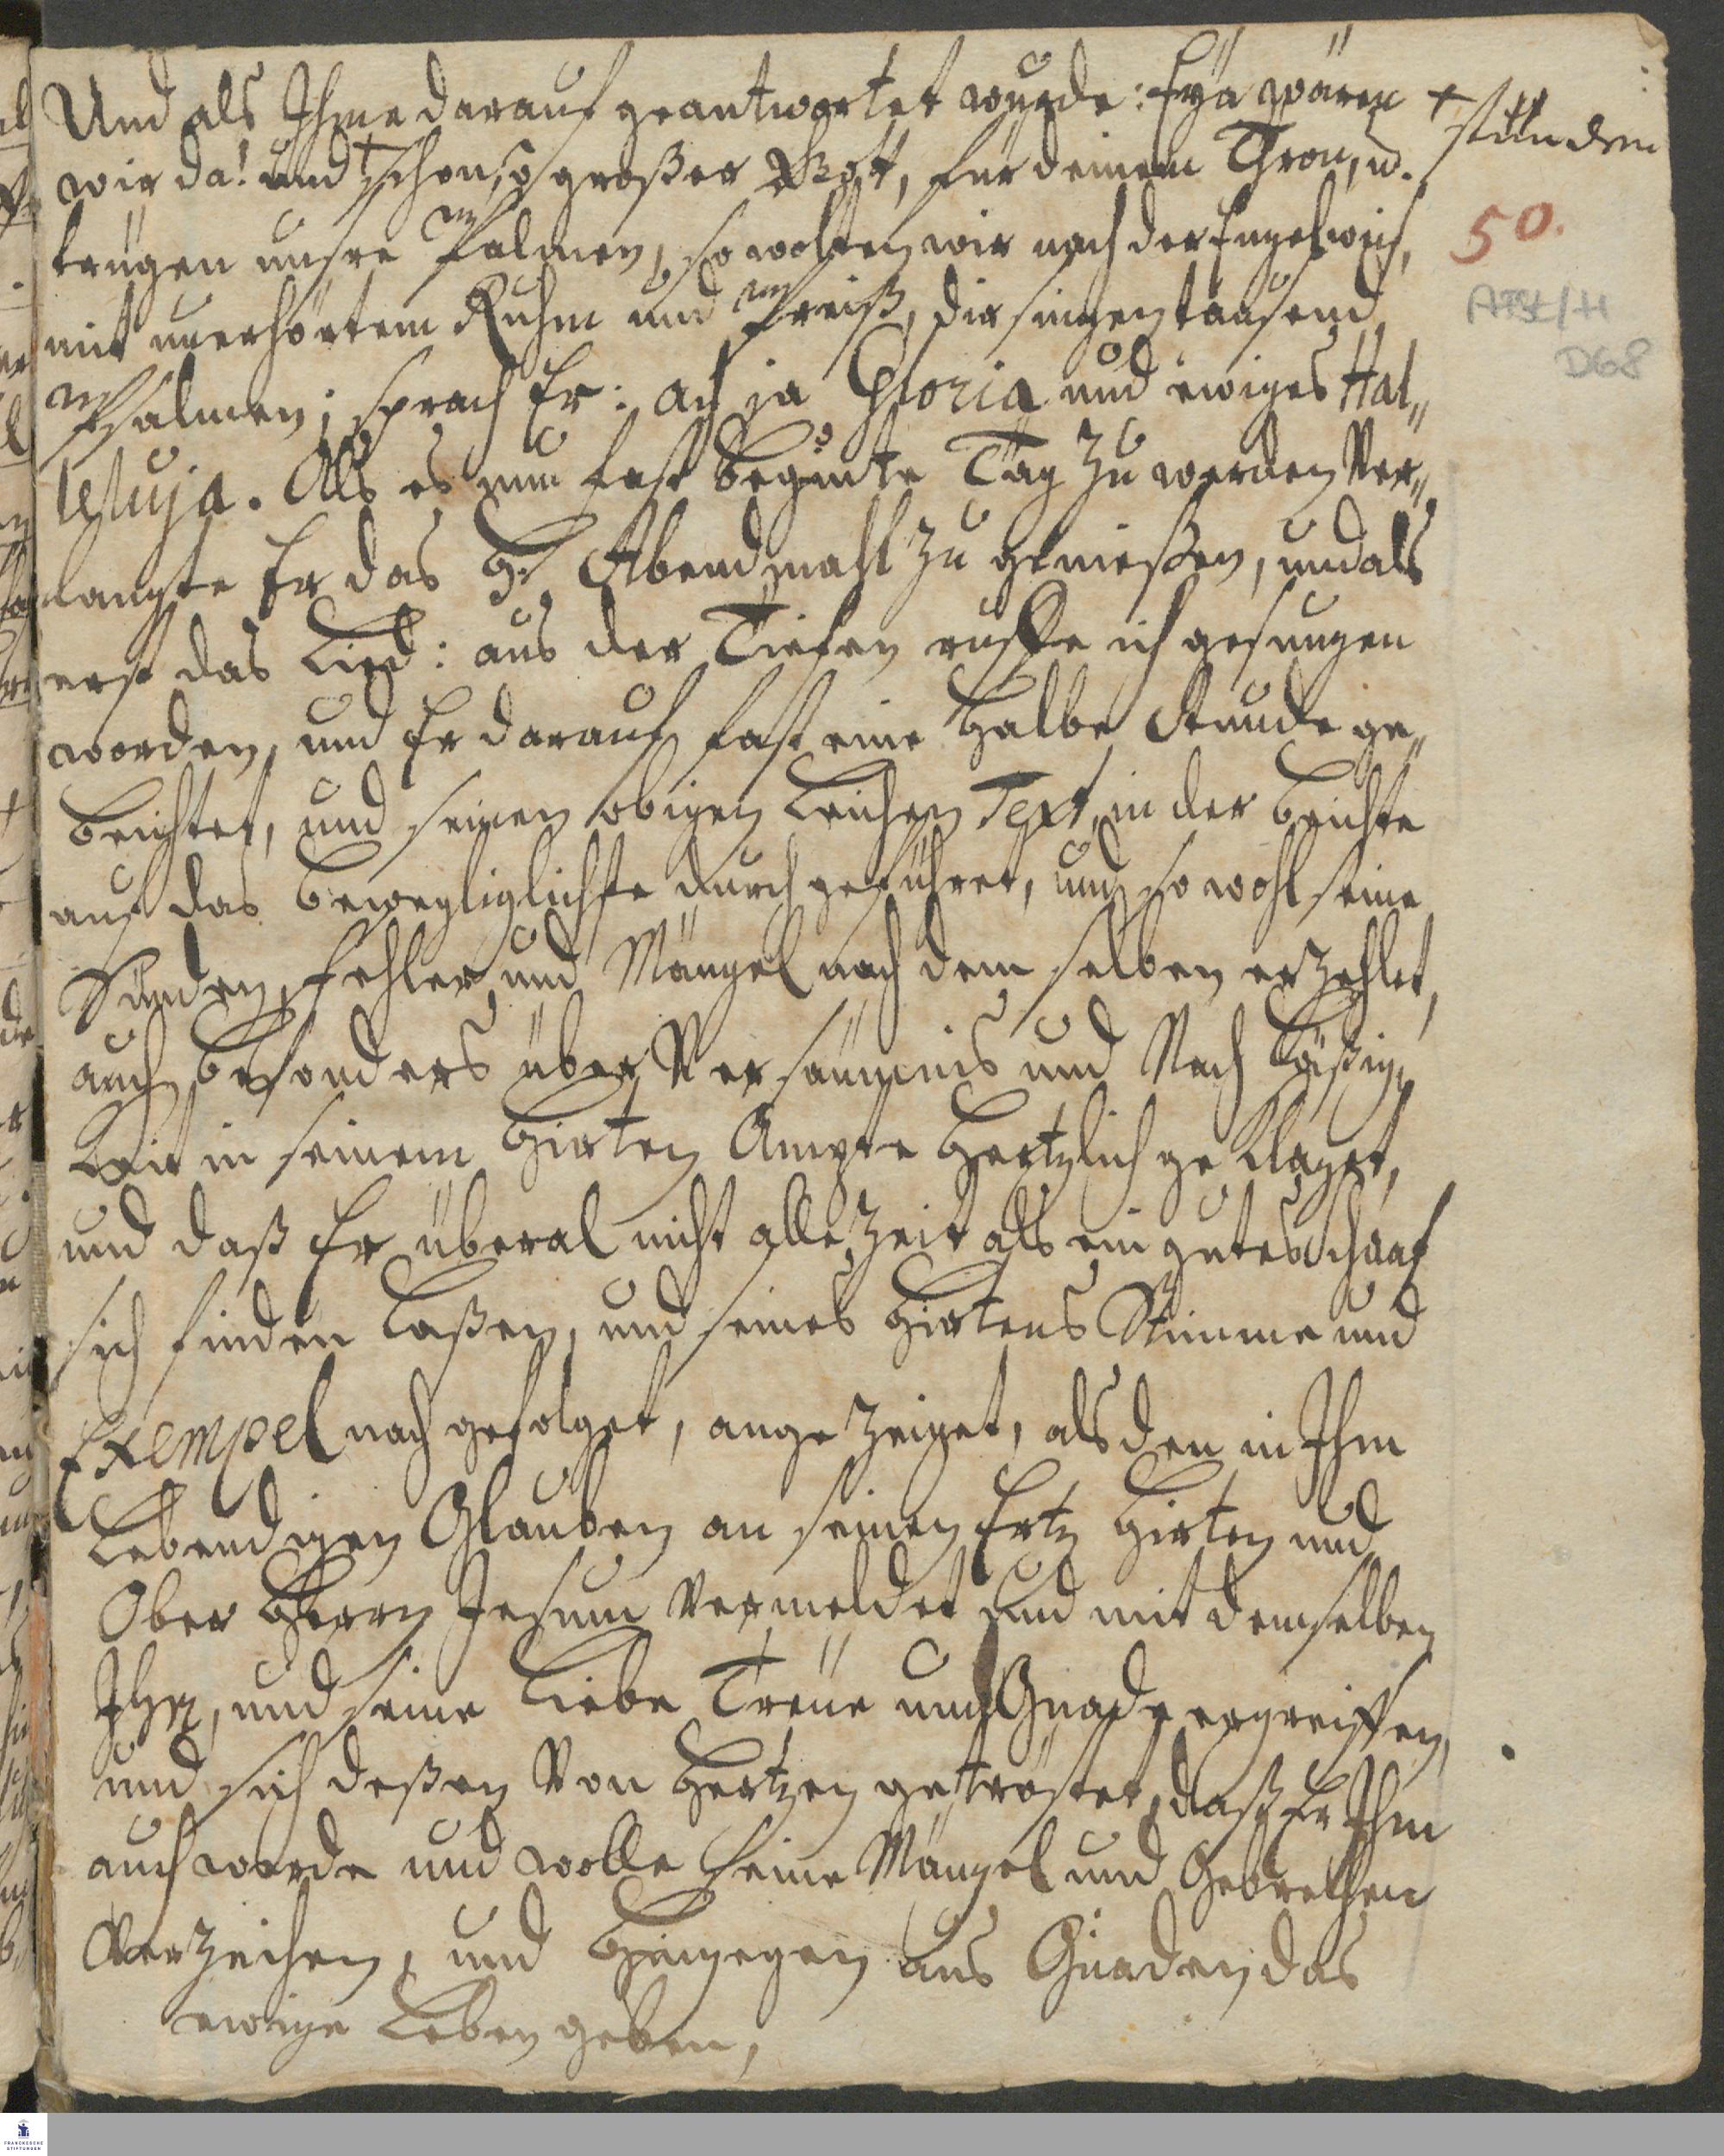 Und als Ihme darauf geantwortet wurde: Eya wären
wir da! und † schon, o großer Gott, für deinem Thron, u.
† stünden
trügen unsre Palmen, so wolten wir nach der Engel weis,
50.
mit unerhörtem Ruhm und Preiß, dir singen tausend
AFSt/H
D68
Psalmen; sprach Er: Ach ja Gloria und ewiges Hal„
leluja. Als es nun fast beginte Tag zu werden Ver„
langte Er das H. Abendmahl zu genießen, und als
erst das Lied: aus der Tiefen ruffe ich gesungen
worden, und Er darauf fast eine halbe Stunde ge„
beichtet, und seinen obigen Leichen Text, in der Beichte
auf das bewegliglichste durch geführet, und so wohl seine
Sünden, Fehler, und Mängel nach dem selben erzehlet,
auch besonders über Versäumnis und Nach läßig„
keit in seinem Hirten Ampte hertzlich geklaget,
und daß Er überal nicht alle Zeit als ein gutes Schaaf
sich finden laßen, und seines Hirtens Stimme und
Exempel nach gefolget, ange zeiget, als den in Ihm
Lebendigen Glauben an seinen Ertz Hirten und
Ober Herrn Jesum Vermeldet und mit demselben
Ihn, und seine Liebe Treue und Gnade ergreiffen,
und sich deßen Von Hertzen getröstet, daß Er Ihm
auch werde und wolle seine Mängel und Gebrechen
Verzeihen, und hingegen aus Gnaden das
ewige Leben geben,
FRANCKESCHE
STIFTUNGEN